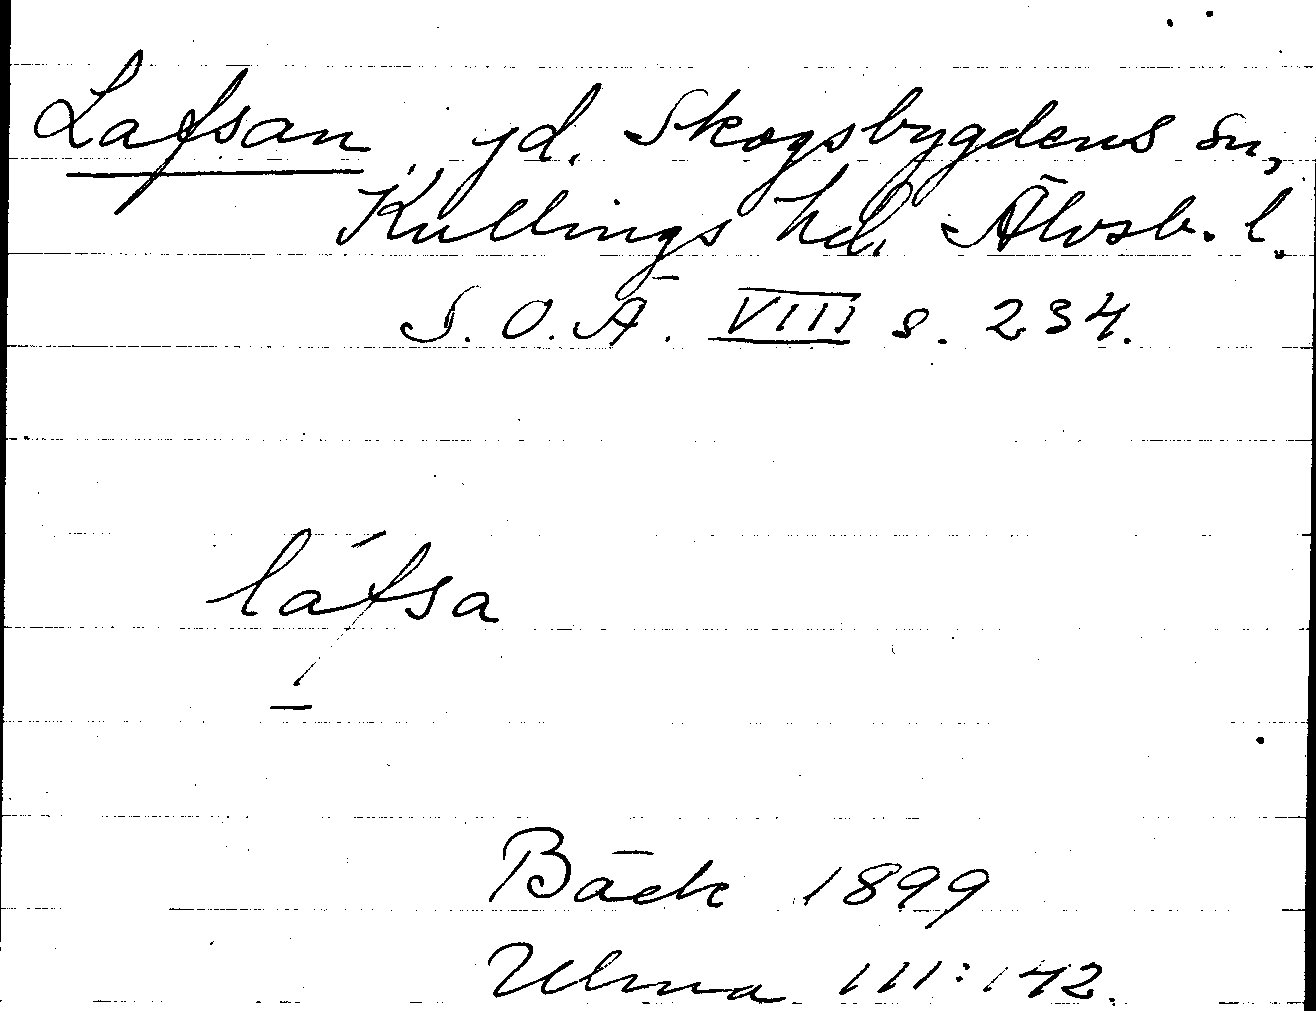 Lafsan, jd. Skogsbygdens sn,
Kullings hd. Älvsb. l.
S. O. Ä. VIII s. 234.
láfsa
Bäck 1899
Ulma 111:142.